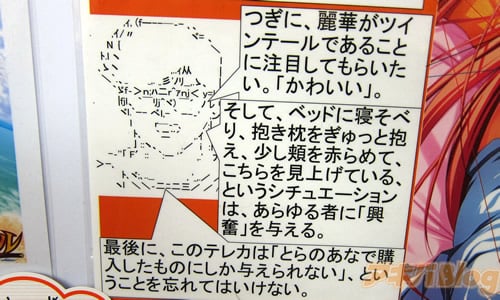 つぎに、麗華がツイ
ンテールであること
に注目してもらいた
い。「かわいい」。
そして、ベッドに寝そべ
り、抱き枕をぎゅっと抱
え、少し頬を赤らめて、
こちらを見上げている、
というシチュエーション
は、あらゆる者に「興
奮」を与える。
最後に、このテレカは「とらのあなで購
入したものにしか与えられない」、とい
うことを忘れてはいけない。
アキバBlog